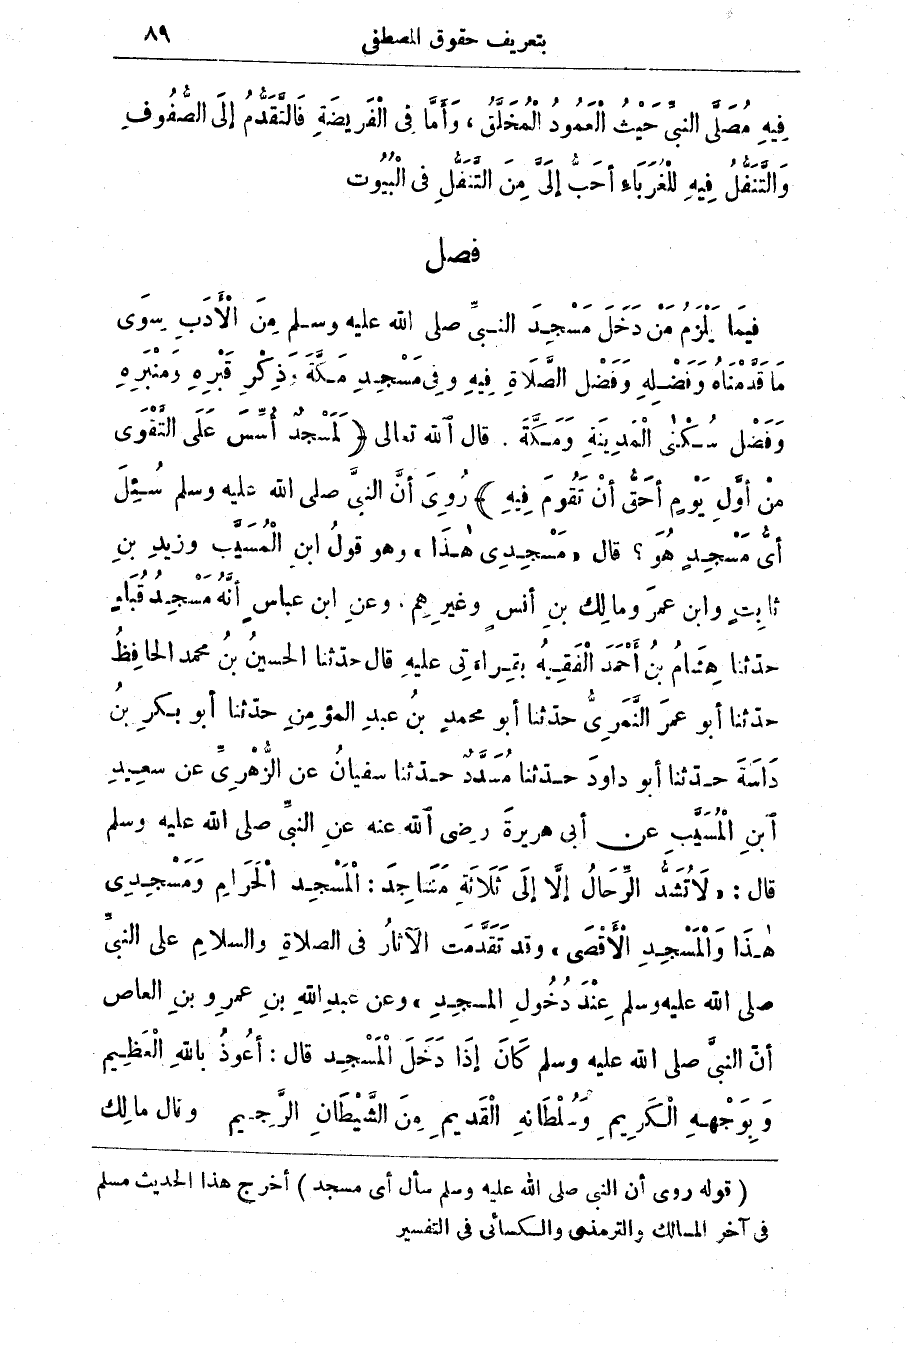 بتعريف حقوق المصطفى ٨٩
فِيهِ مُصَلَّى النبيِّ حَيْثُ الْعَمُودُ الْمُخَلَّقُ ، وَأَمَّا فِى الْفَرِيضَةِ فَالتَّقَدُّمُ إلَى الصُّفُوفِ
وَالتَّنَفُّلُ فِيهِ لِلْغُرَبَاءِ أَحَبُّ إلَىَّ مِنَ التَّنَفُّلِ فى الْبُيُوت
فصل
فِيمَا يَلْزَمُ مَنْ دَخَلَ مَسْجِدَ النبىِّ صلى الله عليه وسلم مِنَ الْأَدَبِ سِوَى
مَا قَدَّمْنَاهُ وَفَضْلِهِ وَفَضْلِ الصَّلَاةِ فِيهِ وفِى مَسْجِدِ مَكَّةَ وَذِكْرِ قَبْرِهِ وَمِنْبَرِهِ
وَفَضْلِ سُكْنَى الْمَدِينَةِ وَمَكَّةَ . قال اللهُ تعالى ﴿ لَمَسْجِدٌ أُسِّسَ عَلَى التَّقْوَى
مِنْ أَوَّلِ يَوْمٍ أَحَقُّ أَنْ تَقُومَ فِيهِ ﴾ رُوِىَ أنَّ النبىَّ صلى الله عليه وسلم سُئِلَ
أىُّ مَسْجِدٍ هُوَ ؟ قال « مَسْجِدِى هٰذَا » وهو قولُ ابنِ الْمُسَيَّبِ وزيدِ بنِ
ثابِتٍ وابن عمرَ ومالِك بنِ أنسٍ وغيرِهِم ، وعن ابن عباسٍ أنَّهُ مَسْجِدُ قُبَاءٍ
حدّثنا هِشَامُ بنُ أَحْمَدَ الْفَقِيهُ بقِراءتى عليهِ قال حدّثنا الحسينُ بنُ محمد الحافِظُ
حدّثنا أبو عمرَ النَّمَرِىُّ حدّثنا أبو محمدٍ بنُ عبدِ المؤمِنِ حدّثنا أبو بكرِ بنُ
دَاسَةَ حدّثنا أبو داودَ حدّثنا مُسَدَّدٌ حدّثنا سفيانُ عن الزُّهْرِىِّ عن سعيدِ
ابنِ الْمُسَيَّبِ عن أبى هريرةَ رضى الله عنه عنِ النبىِّ صلى الله عليه وسلم
قال : « لَا تُشَدُّ الرِّحَالُ إلَّا إلَى ثَلَاثَةِ مَسَاجِدَ : الْمَسْجِدِ الْحَرَامِ وَمَسْجِدِى
هٰذَا وَالْمَسْجِدِ الْأَقْصَى » وقد تَقَدَّمَت الآثارُ فى الصلاةِ والسلامِ على النبىِّ
صلى الله عليه وسلم عِنْدَ دُخُولِ المسجِدِ ، وعن عبدِ اللهِ بنِ عمرِو بنِ العاص
أنّ النبىَّ صلى الله عليه وسلم كَانَ إذَا دَخَلَ الْمَسْجِد قال : أَعُوذُ بِاللهِ الْعَظِيمِ
وَبِوَجْهِهِ الْكَرِيمِ وَسُلْطَانِهِ الْقَدِيمِ مِنَ الشَّيْطَانِ الرَّجِيمِ وقال مالِك
( قوله روى أن النبى صلى الله عليه وسلم سأل أى مسجد ) أخرج هذا الحديث مسلم
فى آخر المسالك والترمذى والكسائى فى التفسير